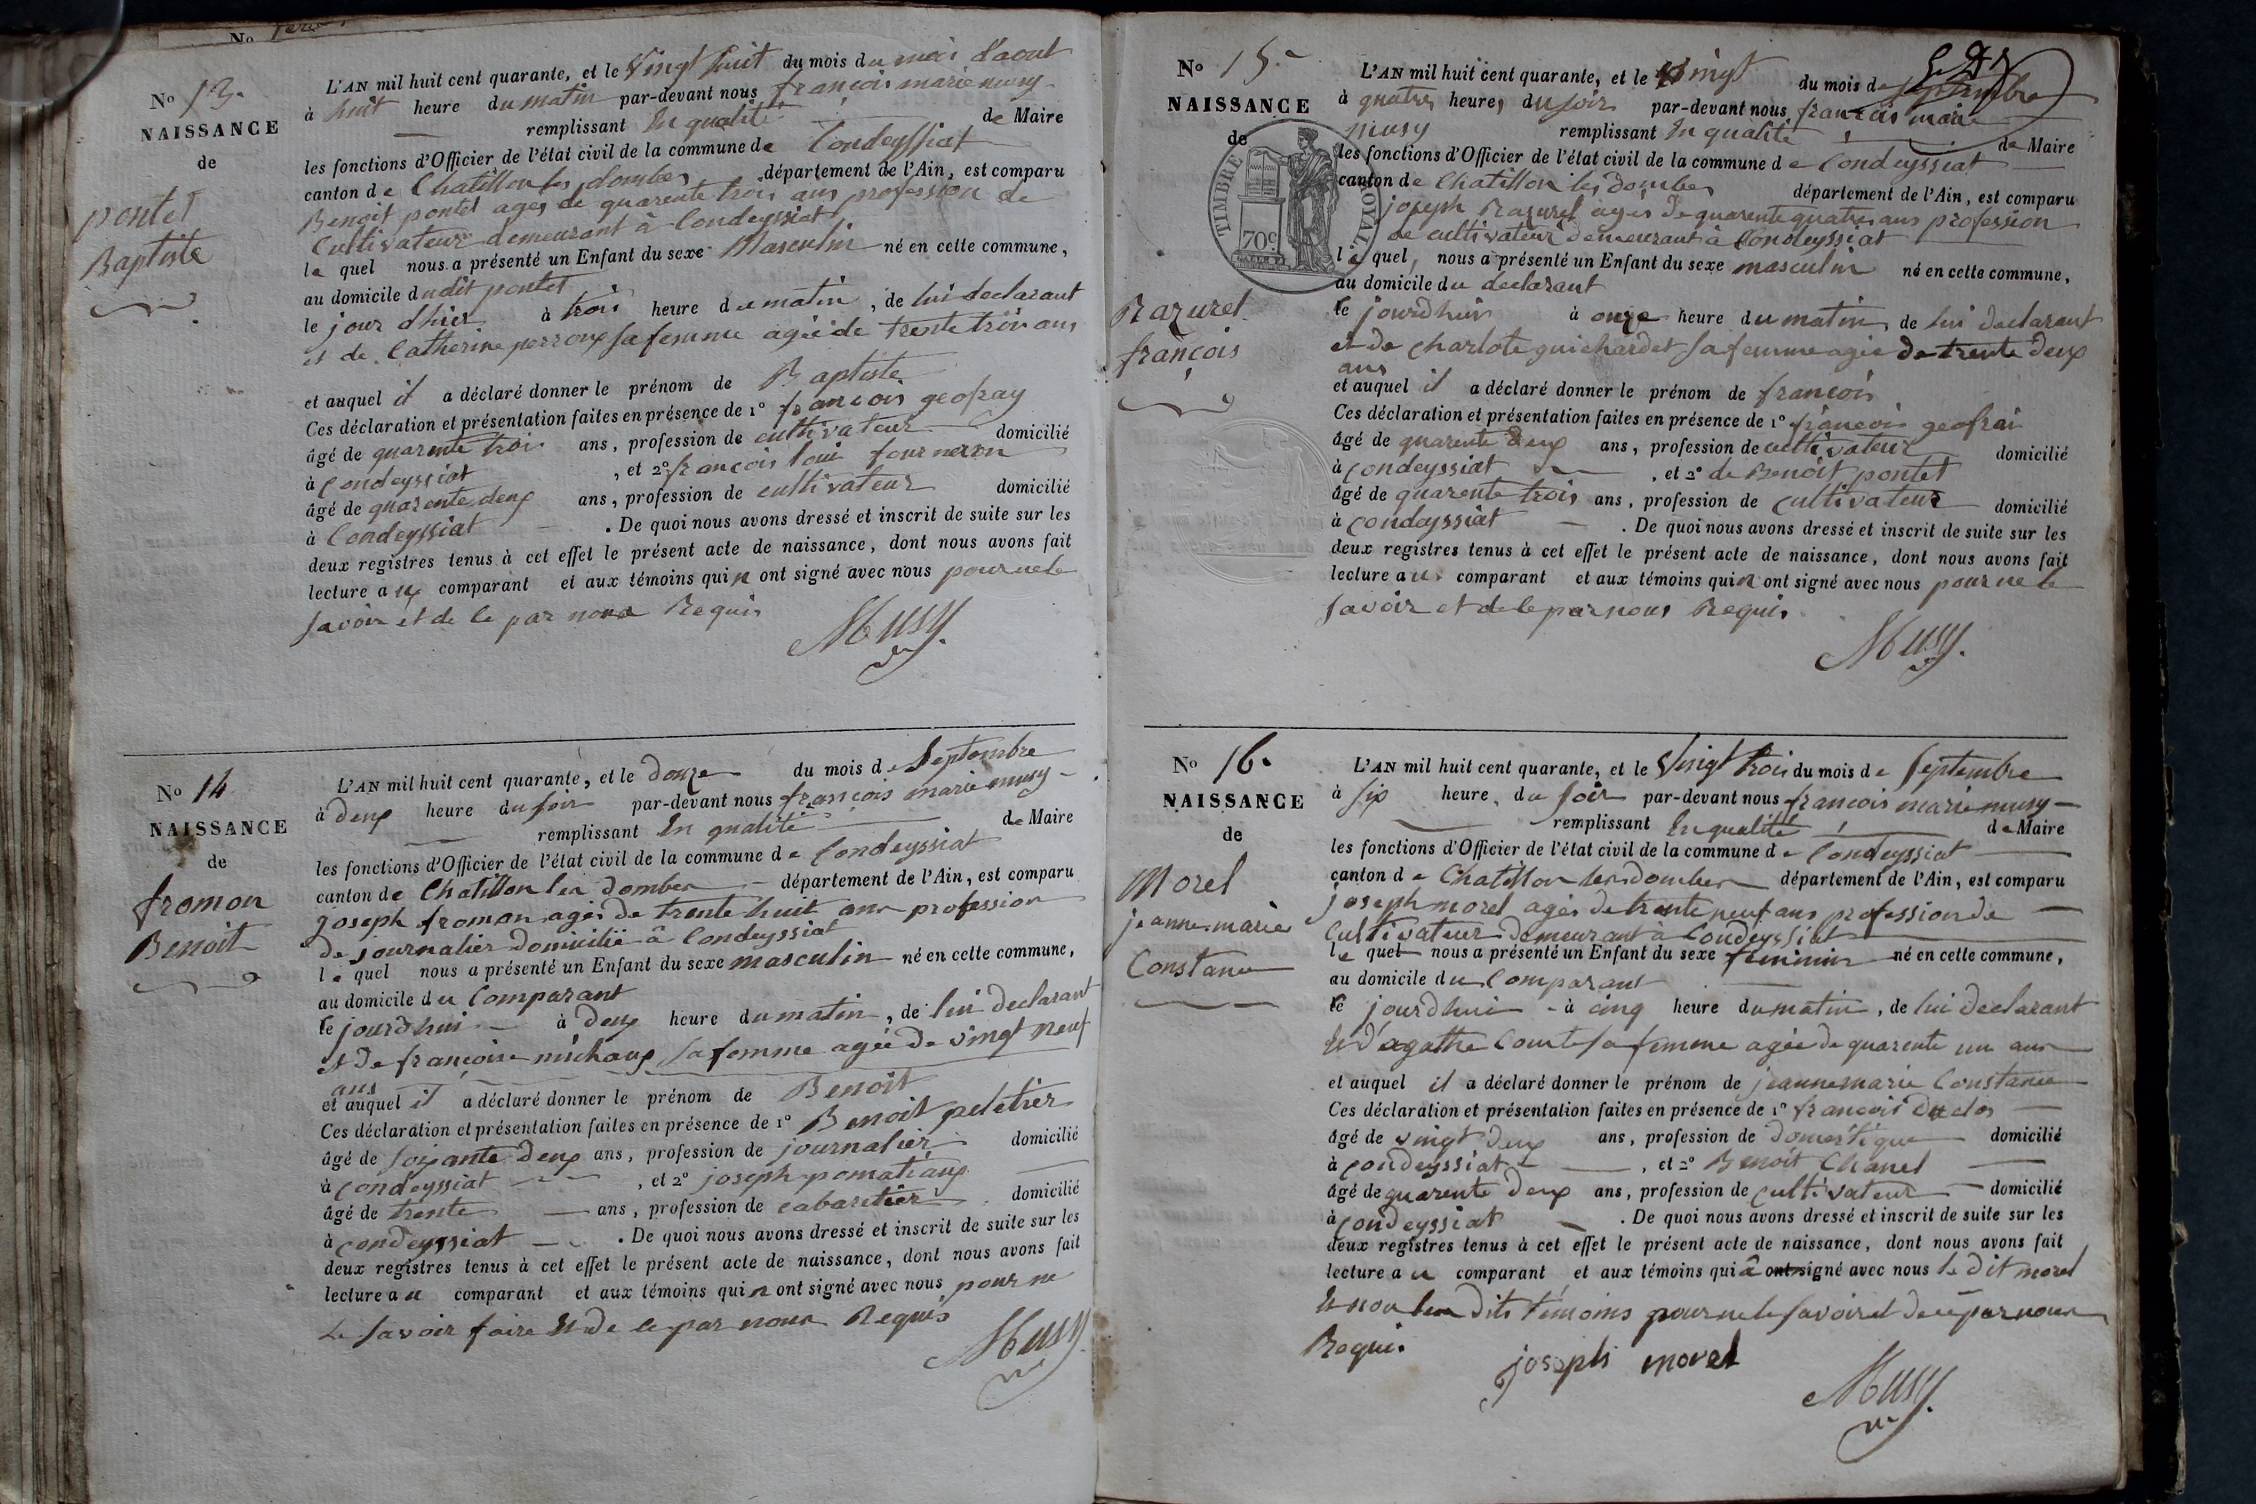 No 13.
NAISSANCE
de
pontet
Baptiste
L'AN mil huit cent quarante, et le Vingt huit du mois du mois d'aout
à huit heure du matin par-devant nous françois marie musy
remplissant En qualité de Maire
les fonctions d'Officier de l'état civil de la commune de Condeyssiat
canton de Chatillon les dombes département de l'Ain, est comparu
Benoit pontet ages de quarente trois ans profession de
Cultivateur demeurant à Condeyssiat
le quel nous a présenté un Enfant du sexe Masculin né en cette commune,
au domicile dudit pontet
le jour d'hier à trois heure du matin, de lui declarant
et de Catherine perroux sa femme agée de trente trois ans
et auquel il a déclaré donner le prénom de Baptiste
Ces déclaration et présentation faites en présence de 1º françois geofray
âgé de quarente trois ans, profession de cultivateur domicilié
à Condeyssiat, et 2º françois loui fourneron
âgé de quarente deux ans, profession de cultivateur domicilié
à Condeyssiat. De quoi nous avons dressé et inscrit de suite sur les
deux registres tenus à cet effet le présent acte de naissance, dont nous avons fait
lecture aux comparant et aux témoins qui n ont signé avec nous pour ne le
savoir et de ce par nous Requis
Musy
No 14
NAISSANCE
de
fromon
Benoit
L'AN mil huit cent quarante, et le douze du mois de Septembre
à deux heure du soir par-devant nous françois marie musy
remplissant En qualité de Maire
les fonctions d'Officier de l'état civil de la commune de Condeyssiat
canton de Chatillon les Dombes département de l'Ain, est comparu
joseph fromon agés de trente huit ans profession
de journalier domicilié à Condeyssiat
le quel nous a présenté un Enfant du sexe masculin né en cette commune,
au domicile du Comparant
le jourdhui à deux heure du matin, de lui declarant
et de françoise michaux sa femme agée de vingt neuf
ans
et auquel il a déclaré donner le prénom de Benoit
Ces déclaration et présentation faites en présence de 1º Benoit peletier
âgé de soixante deux ans, profession de journalier domicilié
à Condeyssiat, et 2º joseph pomatiaux
âgé de trente ans, profession de cabaretier domicilié
à condeyssiat. De quoi nous avons dressé et inscrit de suite sur les
deux registres tenus à cet effet le présent acte de naissance, dont nous avons fait
lecture au comparant et aux témoins qui n ont signé avec nous pour ne
le savoir faire Et de ce par nous Requis
Musy
No 15
NAISSANCE
de
TIMBRE ROYAL
70c
Razurel
françois
L'AN mil huit cent quarante, et le vingt du mois de septembre
à quatres heures du soir par-devant nous françois marie
musy remplissant En qualité de Maire
les fonctions d'Officier de l'état civil de la commune de Condeyssiat
canton de Chatillon les Dombes département de l'Ain, est comparu
joseph Razurel agés de quarente quatres ans profession
de cultivateur demeurant à Condeyssiat
le quel, nous a présenté un Enfant du sexe masculin né en cette commune,
au domicile du declarant
le jourdhui à onze heure du matin, de lui declarant
et de charlote guichardet sa femme agée de trente deux
ans
et auquel il a déclaré donner le prénom de françois
Ces déclaration et présentation faites en présence de 1º françois geofrai
âgé de quarente deux ans, profession de cultivateur domicilié
à condeyssiat, et 2º de Benoit pontet
âgé de quarente trois ans, profession de cultivateur domicilié
à condeyssiat. De quoi nous avons dressé et inscrit de suite sur les
deux registres tenus à cet effet le présent acte de naissance, dont nous avons fait
lecture au comparant et aux témoins qui n ont signé avec nous pour ne le
savoir et de le par nous Requis
Musy.
No 16.
NAISSANCE
de
Morel
jeanne marie
Constance
L'AN mil huit cent quarante, et le Vingt trois du mois de Septembre
à six heure du soir par-devant nous françois marie musy
remplissant En qualité de Maire
les fonctions d'Officier de l'état civil de la commune de Condeyssiat
canton de Chatillon les dombes département de l'Ain, est comparu
joseph morel agés de trente neuf ans profession de
Cultivateur demeurant à Condeyssiat
le quel nous a présenté un Enfant du sexe feminin né en cette commune,
au domicile du Comparant
le jourdhui à cinq heure du matin, de lui declarant
Et d'agathe Comte sa femme agée de quarente un ans
et auquel il a déclaré donner le prénom de jeanne marie Constance
Ces déclaration et présentation faites en présence de 1º françois Duclos
âgé de vingt deux ans, profession de domestique domicilié
à Condeyssiat, et 2º Benoit Chanel
âgé de quarente deux ans, profession de cultivateur domicilié
à Condeyssiat. De quoi nous avons dressé et inscrit de suite sur les
deux registres tenus à cet effet le présent acte de naissance, dont nous avons fait
lecture au comparant et aux témoins qui â ont signé avec nous le dit morel
Et non les dits témoins pour ne le savoir et de ce par nous
Requis
joseph morel
Musy.